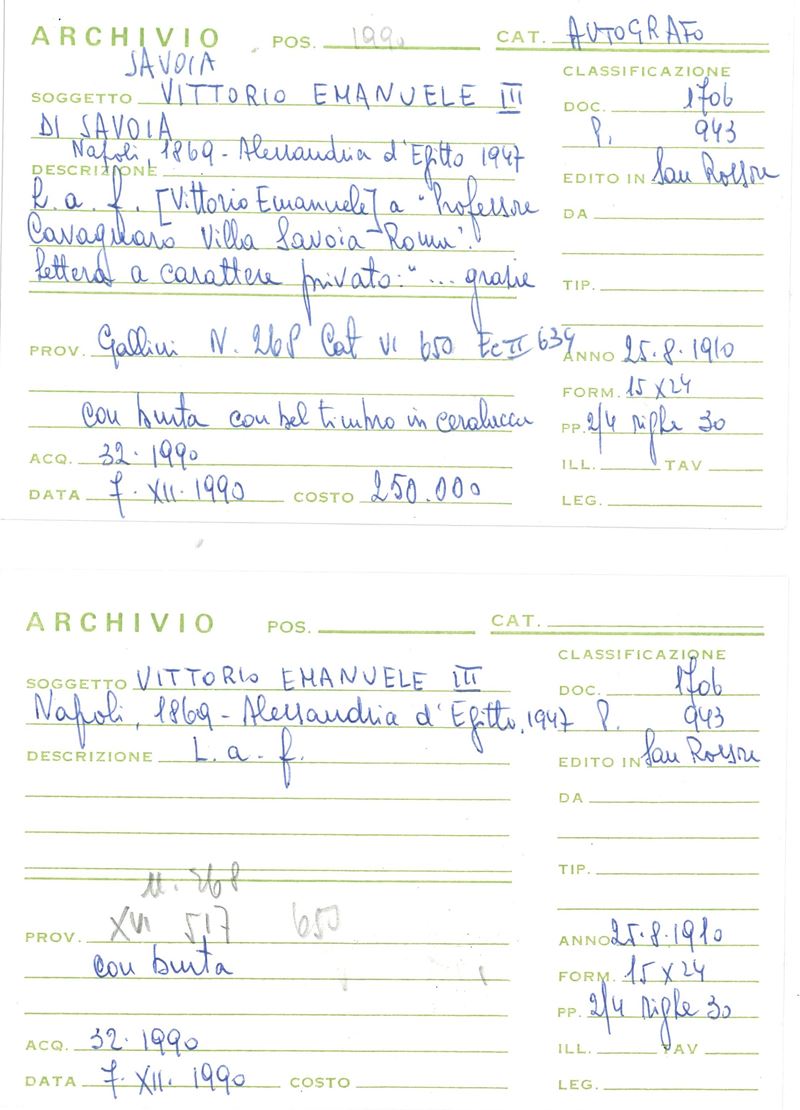 ARCHIVIO POS. 1990 CAT. AUTOGRAFO
SAVOIA
CLASSIFICAZIONE
SOGGETTO VITTORIO EMANUELE III
DOC. 1706
DI SAVOIA
P. 943
Napoli, 1869 - Alessandria d'Egitto 1947
DESCRIZIONE
EDITO IN San Rossore
L. a. f. [Vittorio Emanuele] a "Professore
DA
Cavagnaro Villa Savoia - Roma".
lettera a carattere privato: "... grazie
TIP.
PROV. Gallini N. 268 Cat VI 650 Ec II 634
ANNO 25.8.1910
FORM. 15 x 24
con busta con bel timbro in ceralacca
PP. 2/4 righe 30
ACQ. 32.1990
ILL. TAV
DATA 7.XII.1990 COSTO 250.000
LEG.
ARCHIVIO POS. CAT.
CLASSIFICAZIONE
SOGGETTO VITTORIO EMANUELE III
DOC. 1706
Napoli, 1869 - Alessandria d'Egitto, 1947
P. 943
DESCRIZIONE L. a. f.
EDITO IN San Rossore
DA
TIP.
n. 268
PROV. XVI 517 650
ANNO 25.8.1910
con busta
FORM. 15 x 24
PP. 2/4 righe 30
ACQ. 32.1990
ILL. TAV
DATA 7.XII.1990 COSTO
LEG.